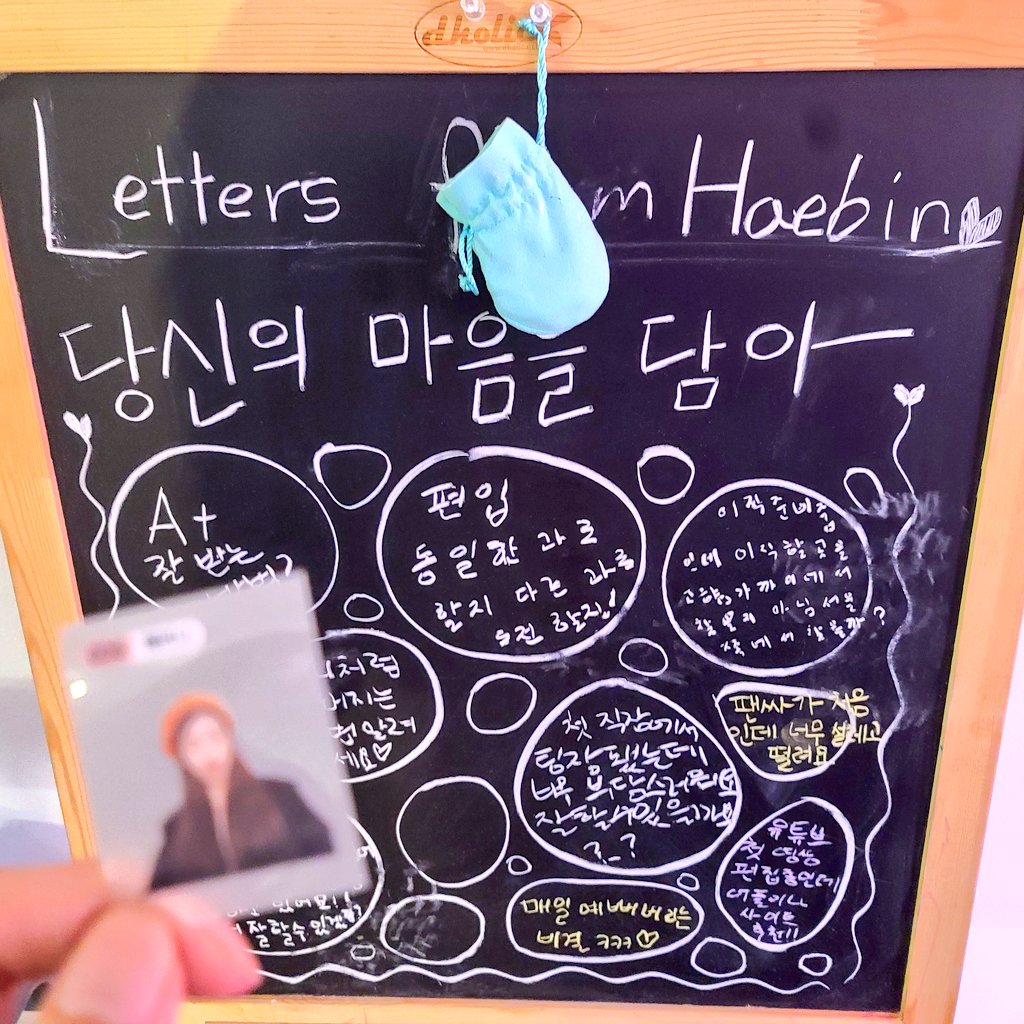 dkolia
Letters m Haebin
당신의 마음을 담아
A+
잘 받는
편입
동일한 과로
할지 다른 과로
도전 할지!
이직준비중
언제 이직할 곳을
서울
첫 직장에서
팀장 됐는데
너무 부담스러워요
잘할 수 있을까요
?_?
팬싸가 처음
인데 너무 설레고
떨려요
유튜브
첫 영상
편집중인데
어플이나
사이트
추천!!
매일 예뻐지는
비결 ㅋㅋㅋ♡
처럼
지는
법 알려
세요♡
있어요!!
잘 할 수 있겠죠?